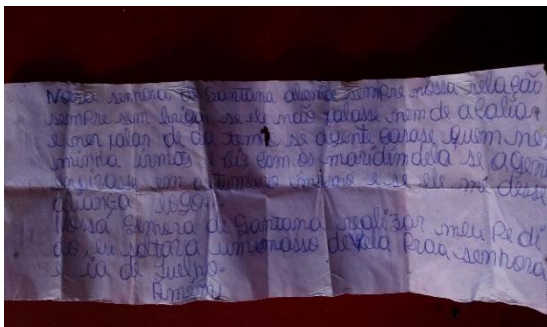 Nossa senhora de Santana abençoe sempre nossa relação
sempre sem brigar se ele não falasse nem de
e nem falar de da tema se agente casase quem nem
minha irmãs feliz com os maridim dela se agente
em mesmo e se ele mi desse
aliança logo.
Nossa Senhora de Santana realizar meu Pedi
do eu soltara um masso de vela Praa senhora
e ia de Juelho.
Amem